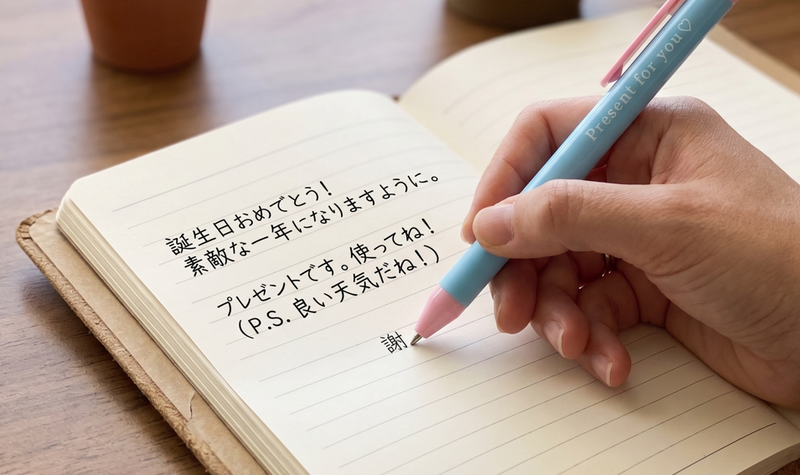 誕生日おめでとう！
素敵な一年になりますように。
プレゼントです。使ってね！
（P.S. 良い天気だね！）
謝
Present for you♡